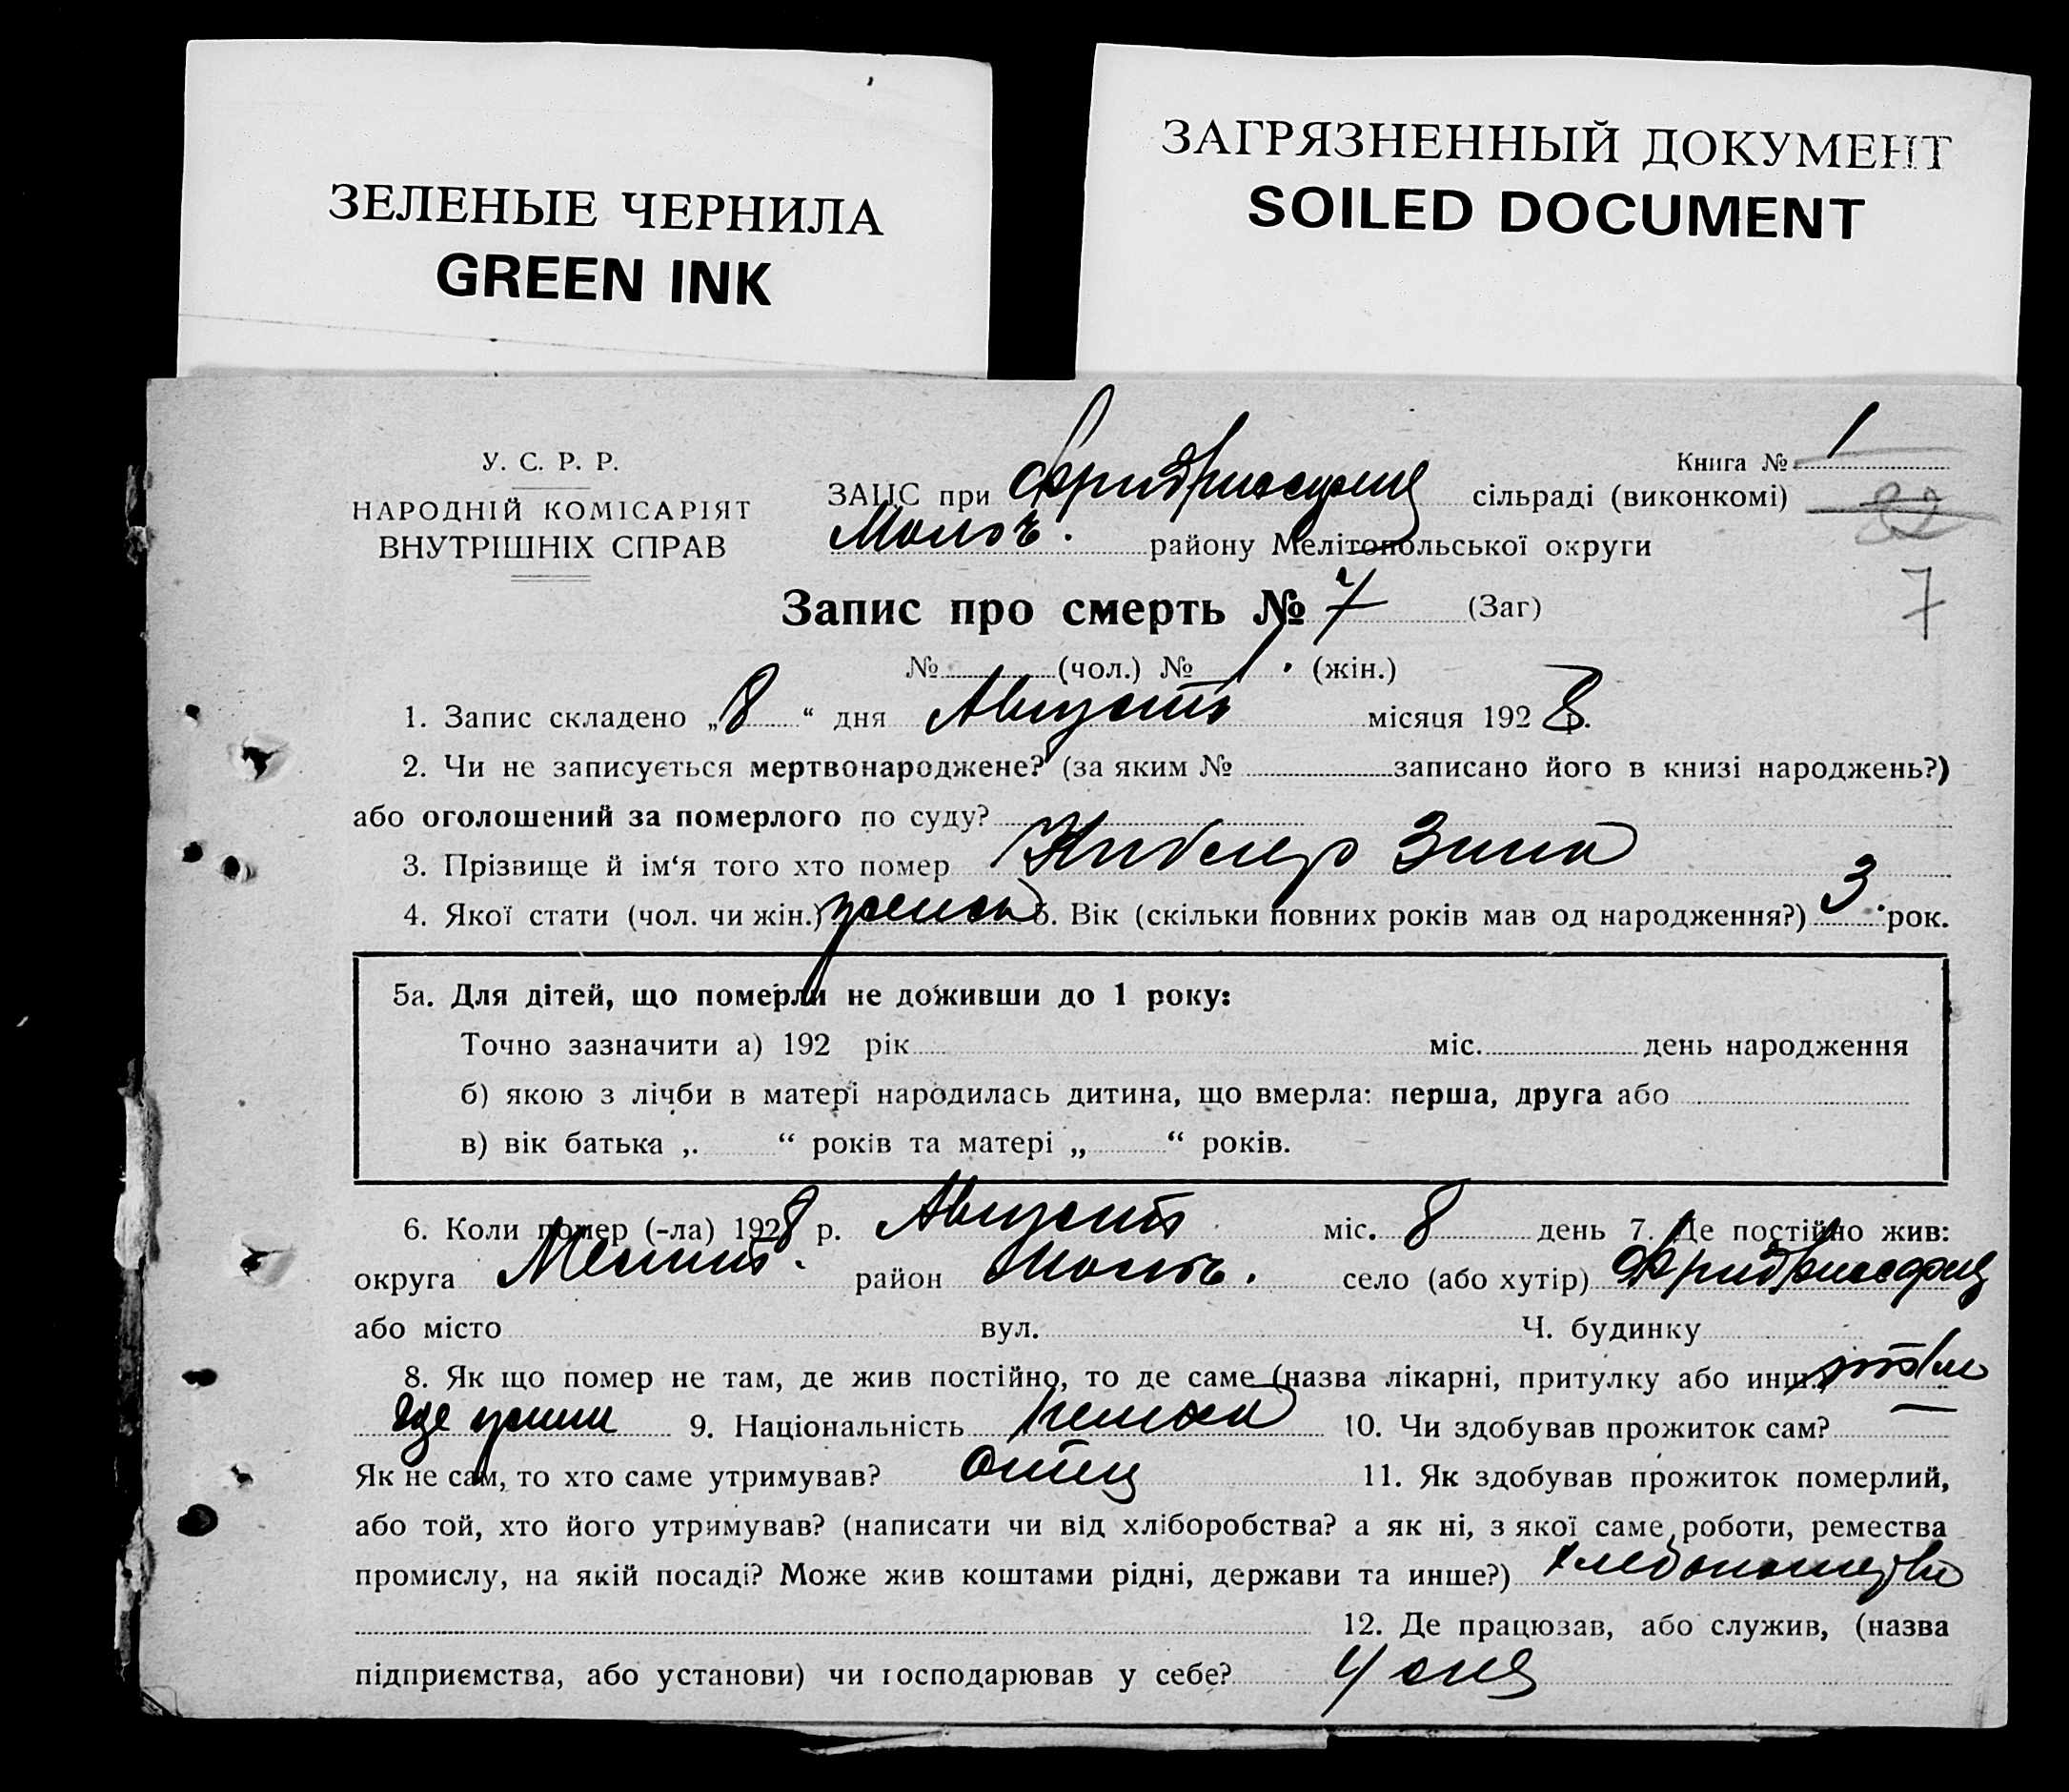 ЗЕЛЕНЫЕ ЧЕРНИЛА
GREEN INK
ЗАГРЯЗНЕННЫЙ ДОКУМЕНТ
SOILED DOCUMENT
У. С. Р. Р.
НАРОДНІЙ КОМІСАРІЯТ
ВНУТРІШНІХ СПРАВ
Книга № 1
ЗАЦС при сільраді (виконкомі)
22
Молоч. району Мелітопольської округи
7
Запис про смерть № 7 (Заг)
№ (чол.) № 1. (жін.)
1. Запис складено „8“ дня Августа місяця 1928 р.
2. Чи не записується мертвонароджене? (за яким № записано його в книзі народжень?)
або оголошений за померлого по суду?
3. Прізвище й ім‘я того хто помер Киблер Зина
4. Якої стати (чол. чи жін.) женск 5. Вік (скільки повних років мав од народження?) 3 рок.
5а. Для дітей, що померли не доживши до 1 року:
Точно зазначити а) 192 рік міс. день народження
б) якою з лічби в матері народилась дитина, що вмерла: перша, друга або
в) вік батька „ “ років та матері „ “ років.
6. Коли помер (-ла) 1928 р. Августа міс. 8 день 7. Де постійно жив:
округа Мелит. район Молоч. село (або хутір) Фридрихсфельд
або місто вул. Ч. будинку
8. Як що помер не там, де жив постійно, то де саме (назва лікарні, притулку або инш.)
где жили 9. Національність немка 10. Чи здобував прожиток сам? —
Як не сам, то хто саме утримував? Отец 11. Як здобував прожиток померлий,
або той, хто його утримував? (написати чи від хліборобства? а як ні, з якої саме роботи, ремества
промислу, на якій посаді? Може жив коштами рідні, держави та инше?) хлебопашество
12. Де працював, або служив, (назва
підприємства, або установи) чи господарював у себе? У себя